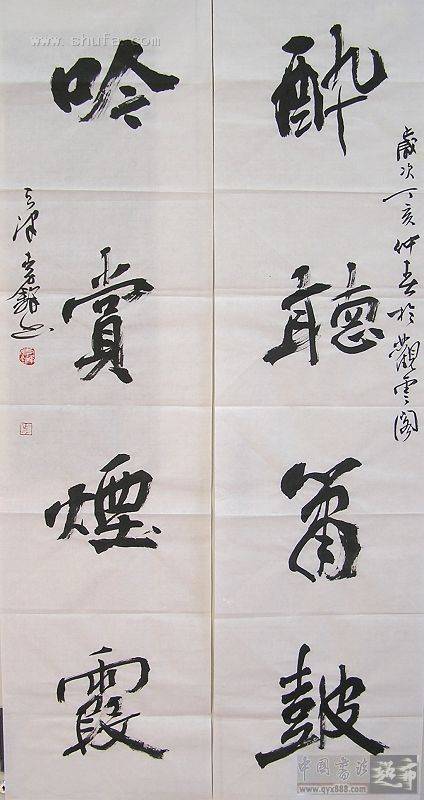 歲次丁亥仲春於觀雲閣
醉聽簫鼓
吟賞煙霞
天津李毅書
www.shufa.com
中国书法超市
www.qyx888.com